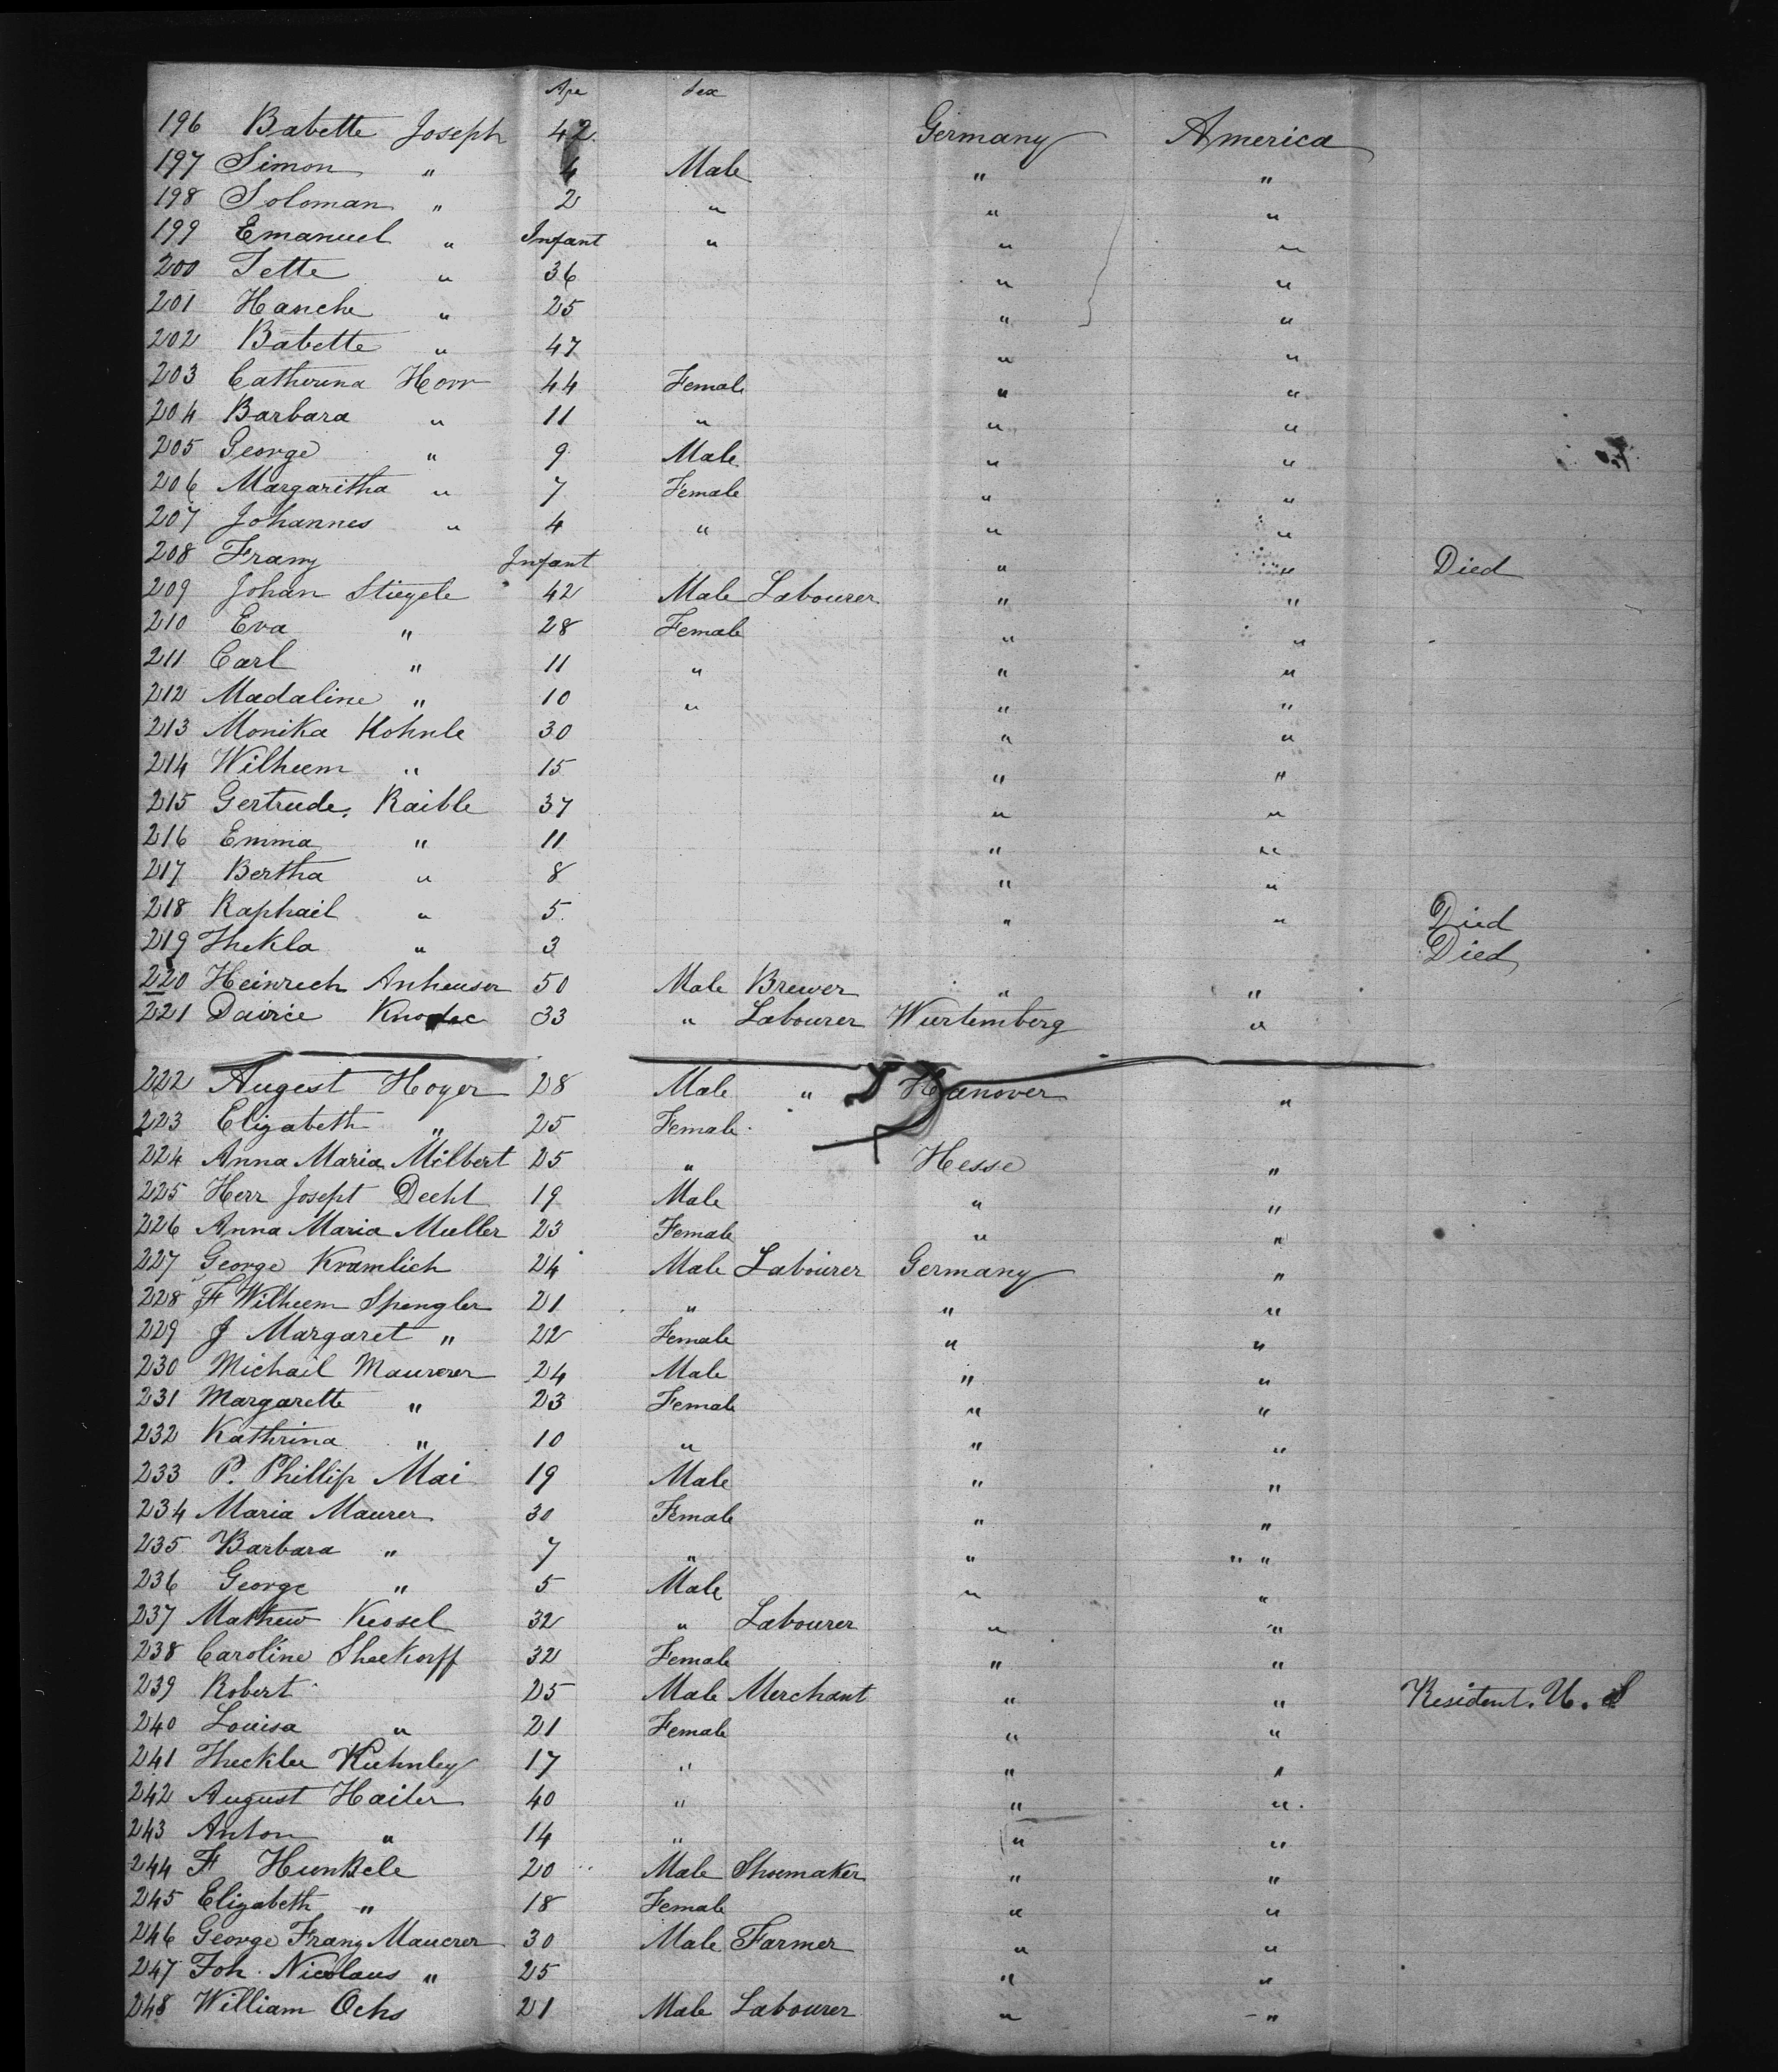 Age Sex
196 Babette Joseph 42 Germany America
197 Simon " 4 Male " "
198 Soloman " 2 " " "
199 Emanuel " Infant " " "
200 Tette " 36 " "
201 Hanche " 25 " "
202 Babette " 47 " "
203 Catherina Horr 44 Female " "
204 Barbara " 11 " " "
205 George " 9 Male " "
206 Margaritha " 7 Female " "
207 Johannes " 4 " " "
208 Franz Infant " " Died
209 Johan Stiegele 42 Male Labourer " "
210 Eva " 28 Female " "
211 Carl " 11 " " "
212 Madaline " 10 " " "
213 Monika Kohnle 30 " "
214 Wilheem " 15 " "
215 Gertrude Raible 37 " "
216 Emma " 11 " "
217 Bertha " 8 " "
218 Raphail " 5 " " Died
219 Thekla " 3 Died
220 Heinrech Anheuser 50 Male Brewer " "
221 33 " Labourer Wurtemberg "
222 Augest Hoyer 28 Male " Hanover "
223 Elizabeth " 25 Female
224 Anna Maria Milbert 25 " Hesse "
225 Herr Joseph Decht 19 Male " "
226 Anna Maria Muller 23 Female " "
227 George Kramlich 24 Male Labourer Germany "
228 F Wilheem Spengler 21 " " "
229 J Margaret " 22 Female " "
230 Michail Maurerer 24 Male " "
231 Margarette " 23 Female " "
232 Kathrina " 10 " " "
233 P. Phillip Mai 19 Male " "
234 Maria Maurer 30 Female " "
235 Barbara " 7 " " " "
236 George " 5 Male " "
237 Mathew Kessel 32 " Labourer " "
238 Caroline Sheekorff 32 Female " "
239 Robert 25 Male Merchant " " Resident. U. S
240 Louisa " 21 Female " "
241 Thecklee Kuhnley 17 " " "
242 August Hailer 40 " " "
243 Anton " 14 " " "
244 F Hunkele 20 Male Shoemaker " "
245 Elizabeth " 18 Female " "
246 George Franz Mauerer 30 Male Farmer " "
247 Joh. Nicolaus " 25 " "
248 William Ochs 21 Male Labourer " "